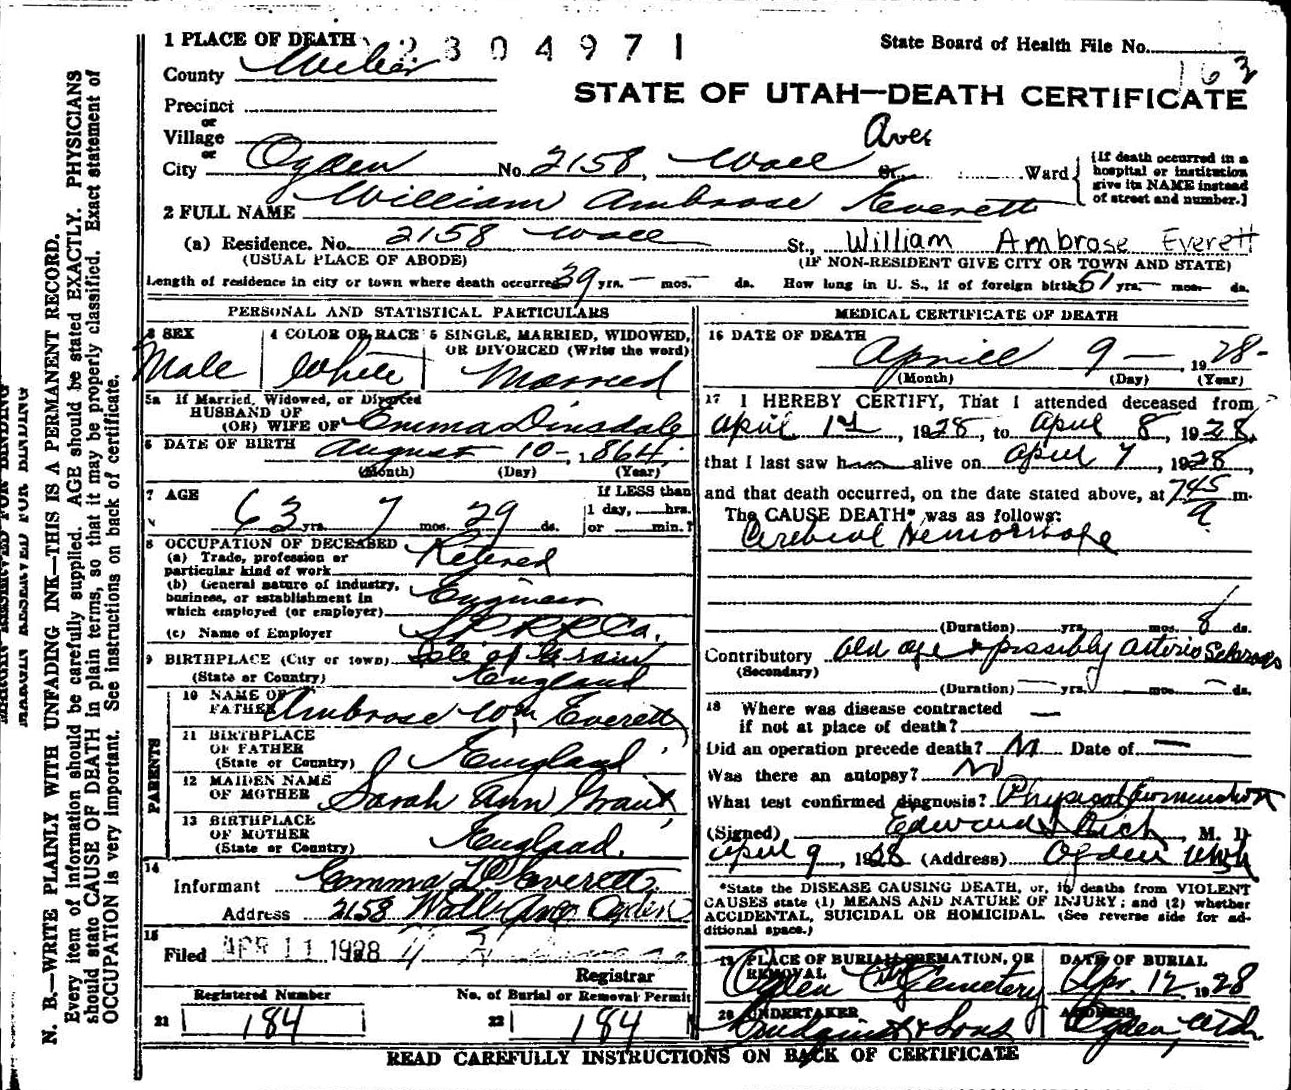 1 PLACE OF DEATH 2304971
State Board of Health File No.
163
County Weber
STATE OF UTAH—DEATH CERTIFICATE
Precinct
or
Village
or
City Ogden No. 2158, Wall Ave St., Ward
{If death occurred in a
hospital or institution
give its NAME instead
of street and number.}
2 FULL NAME William Ambrose Everett
(a) Residence. No. 2158 Wall St., William Ambrose Everett
(USUAL PLACE OF ABODE) (IF NON-RESIDENT GIVE CITY OR TOWN AND STATE)
Length of residence in city or town where death occurred 39 yrs. — mos. — ds. How long in U. S., if of foreign birth 51 yrs. — mos. — ds.
PERSONAL AND STATISTICAL PARTICULARS
3 SEX Male
4 COLOR OR RACE White
5 SINGLE, MARRIED, WIDOWED,
OR DIVORCED (Write the word)
Married
5a If Married, Widowed, or Divorced
HUSBAND OF
(OR) WIFE OF Emma Dinsdale
6 DATE OF BIRTH August 10 -, 1864
(Month) (Day) (Year)
7 AGE 63 yrs. 7 mos. 29 ds.
If LESS than
1 day, hrs.
or min.?
8 OCCUPATION OF DECEASED
(a) Trade, profession or
particular kind of work Retired
(b) General nature of industry,
business, or establishment in
which employed (or employer) Engineer
(c) Name of Employer S P R R Co.
9 BIRTHPLACE (City or town) Isle of Grain
(State or Country) England
PARENTS
10 NAME OF
FATHER Ambrose Wm Everett
11 BIRTHPLACE
OF FATHER
(State or Country) England
12 MAIDEN NAME
OF MOTHER Sarah Ann
13 BIRTHPLACE
OF MOTHER
(State or Country) England.
14
Informant Emma D Everett
Address 2158 Wall Ave Ogden
15
Filed APR 11 1928
Registrar
Registered Number No. of Burial or Removal Permit
21 184 22 184
MEDICAL CERTIFICATE OF DEATH
16 DATE OF DEATH
April 9 — 1928-
(Month) (Day) (Year)
17 I HEREBY CERTIFY, That I attended deceased from
April 1st, 1928, to April 8, 1928,
that I last saw him alive on April 7, 1928,
and that death occurred, on the date stated above, at 745 a m.
The CAUSE DEATH* was as follows:
Cerebral Hemorrhage
(Duration) yrs. mos. 8 ds.
Contributory Old age & possibly arterio Sclerosis
(Secondary)
(Duration) — yrs. mos. — ds.
18 Where was disease contracted
if not at place of death? —
Did an operation precede death? No Date of —
Was there an autopsy? No
What test confirmed diagnosis? Physical
(Signed) Edward I Rich, M. D.
April 9, 1928 (Address) Ogden Utah
*State the DISEASE CAUSING DEATH, or, in deaths from VIOLENT
CAUSES state (1) MEANS AND NATURE OF INJURY; and (2) whether
ACCIDENTAL, SUICIDAL OR HOMICIDAL. (See reverse side for ad-
ditional space.)
19 PLACE OF BURIAL, CREMATION, OR
REMOVAL
Ogden City Cemetery
DATE OF BURIAL
Apr. 12, 1928
20 UNDERTAKER
Lindquist & Sons
ADDRESS
Ogden, Utah
READ CAREFULLY INSTRUCTIONS ON BACK OF CERTIFICATE
MARGIN RESERVED FOR BINDING
MARGIN RESERVED FOR BINDING
N. B.—WRITE PLAINLY WITH UNFADING INK—THIS IS A PERMANENT RECORD.
Every item of information should be carefully supplied. AGE should be stated EXACTLY. PHYSICIANS
should state CAUSE OF DEATH in plain terms, so that it may be properly classified. Exact statement of
OCCUPATION is very important. See instructions on back of certificate.